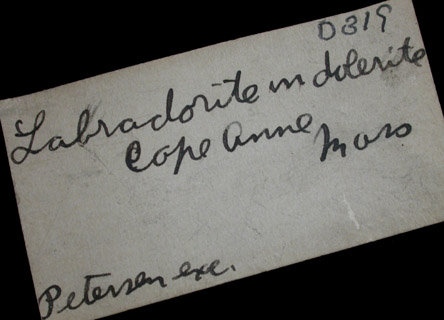 D319
Labradorite in dolerite
Cape Anne
Mass
Petersen exc.